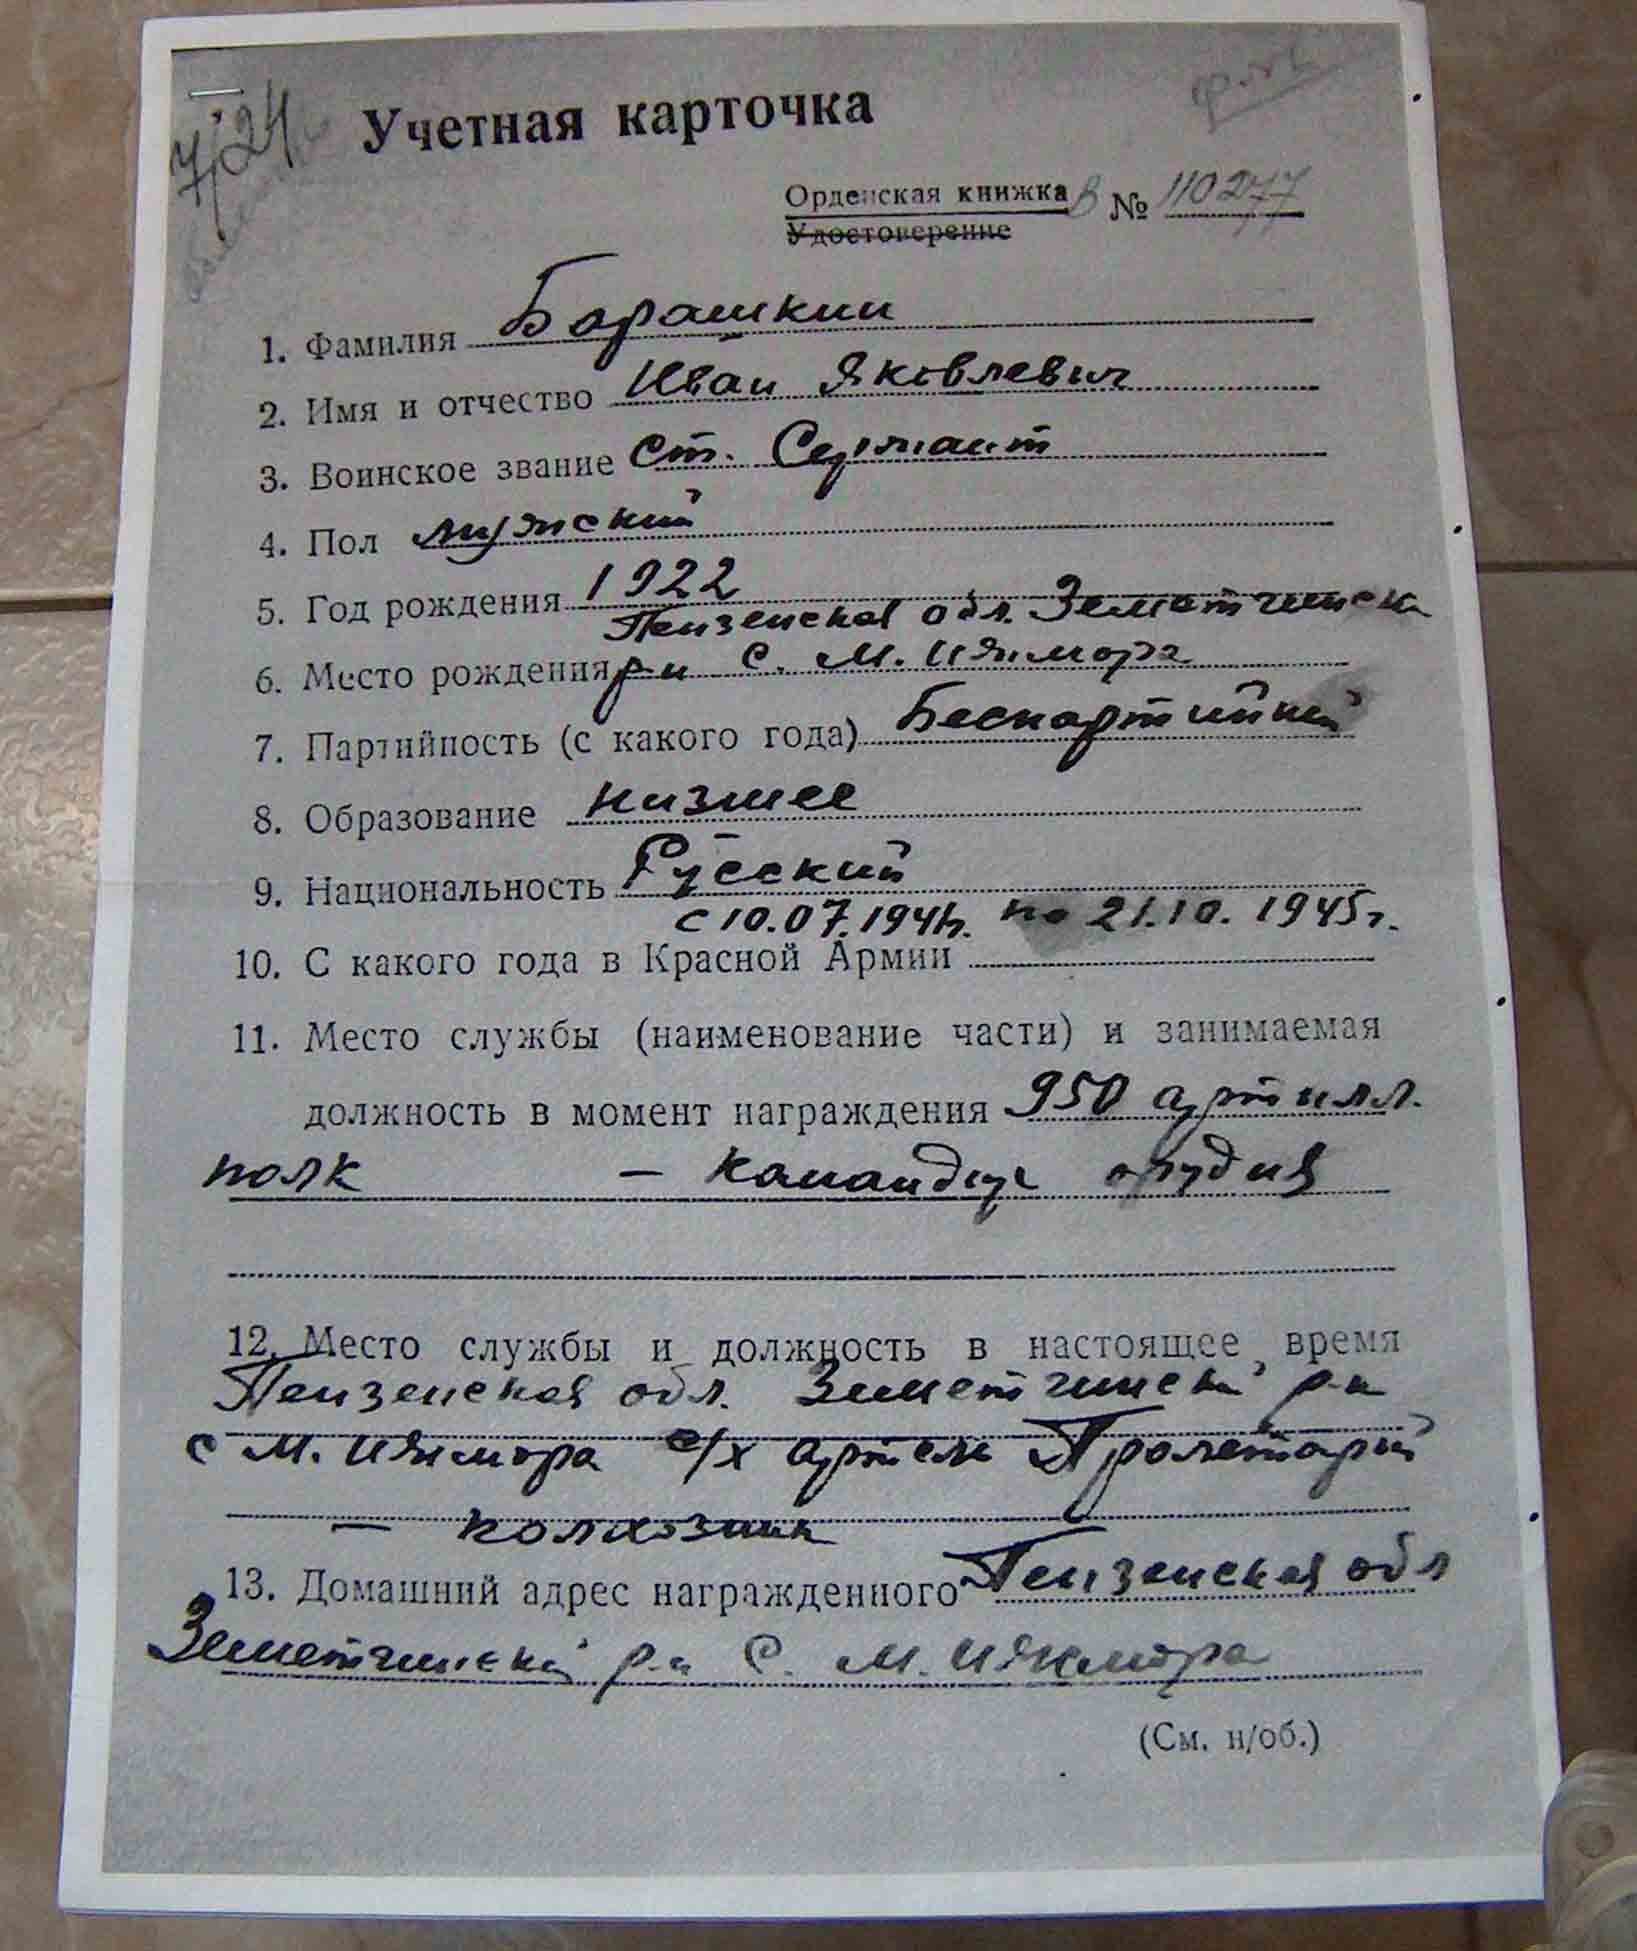 7/24
Учетная карточка
Орденская книжка В № 110277
Удостоверение
1. Фамилия Барашкин
2. Имя и отчество Иван Яковлевич
3. Воинское звание Ст. Сержант
4. Пол мужской
5. Год рождения 1922
Пензенская обл. Земетчинск
6. Место рождения р-н С. М. Ижмора
7. Партийность (с какого года) Беспартийный
8. Образование низшее
9. Национальность Русский
с 10.07.1941г. по 21.10.1945г.
10. С какого года в Красной Армии
11. Место службы (наименование части) и занимаемая
должность в момент награждения 950 артилл.
полк – командир орудия
12. Место службы и должность в настоящее время
Пензенская обл. Земетчинский р-н
с М. Ижмора с/х артель Пролетарий
– колхозник
13. Домашний адрес награжденного Пензенская обл
Земетчинский р-н С. М. Ижмора
(См. н/об.)